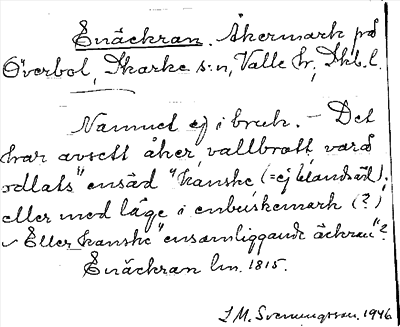 Enäckran. Åkermark på
Överbol, Skarke s:n, Valle hr, Skb. l.
Namnet ej i bruk. – Det
har avsett åker, vallbrott, varå
odlats "ensäd" kanske, (= ej blandsäd).
eller med läge i enbuskemark (?)
– Eller kanske "ensamliggande äckran"?
Enäckran lm. 1815.
J. M. Svenningsson. 1946